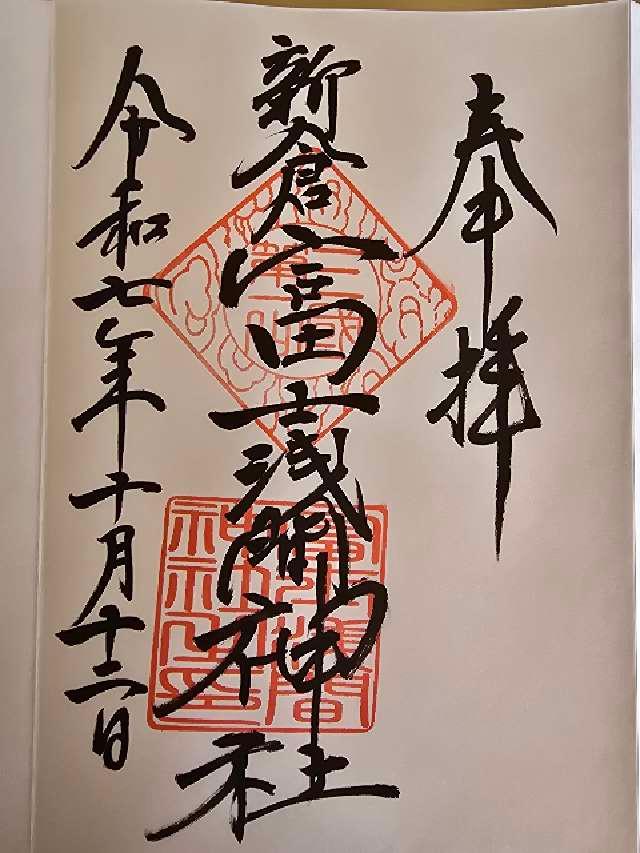 奉拝
新倉富士浅間神社
令和七年十月十二日